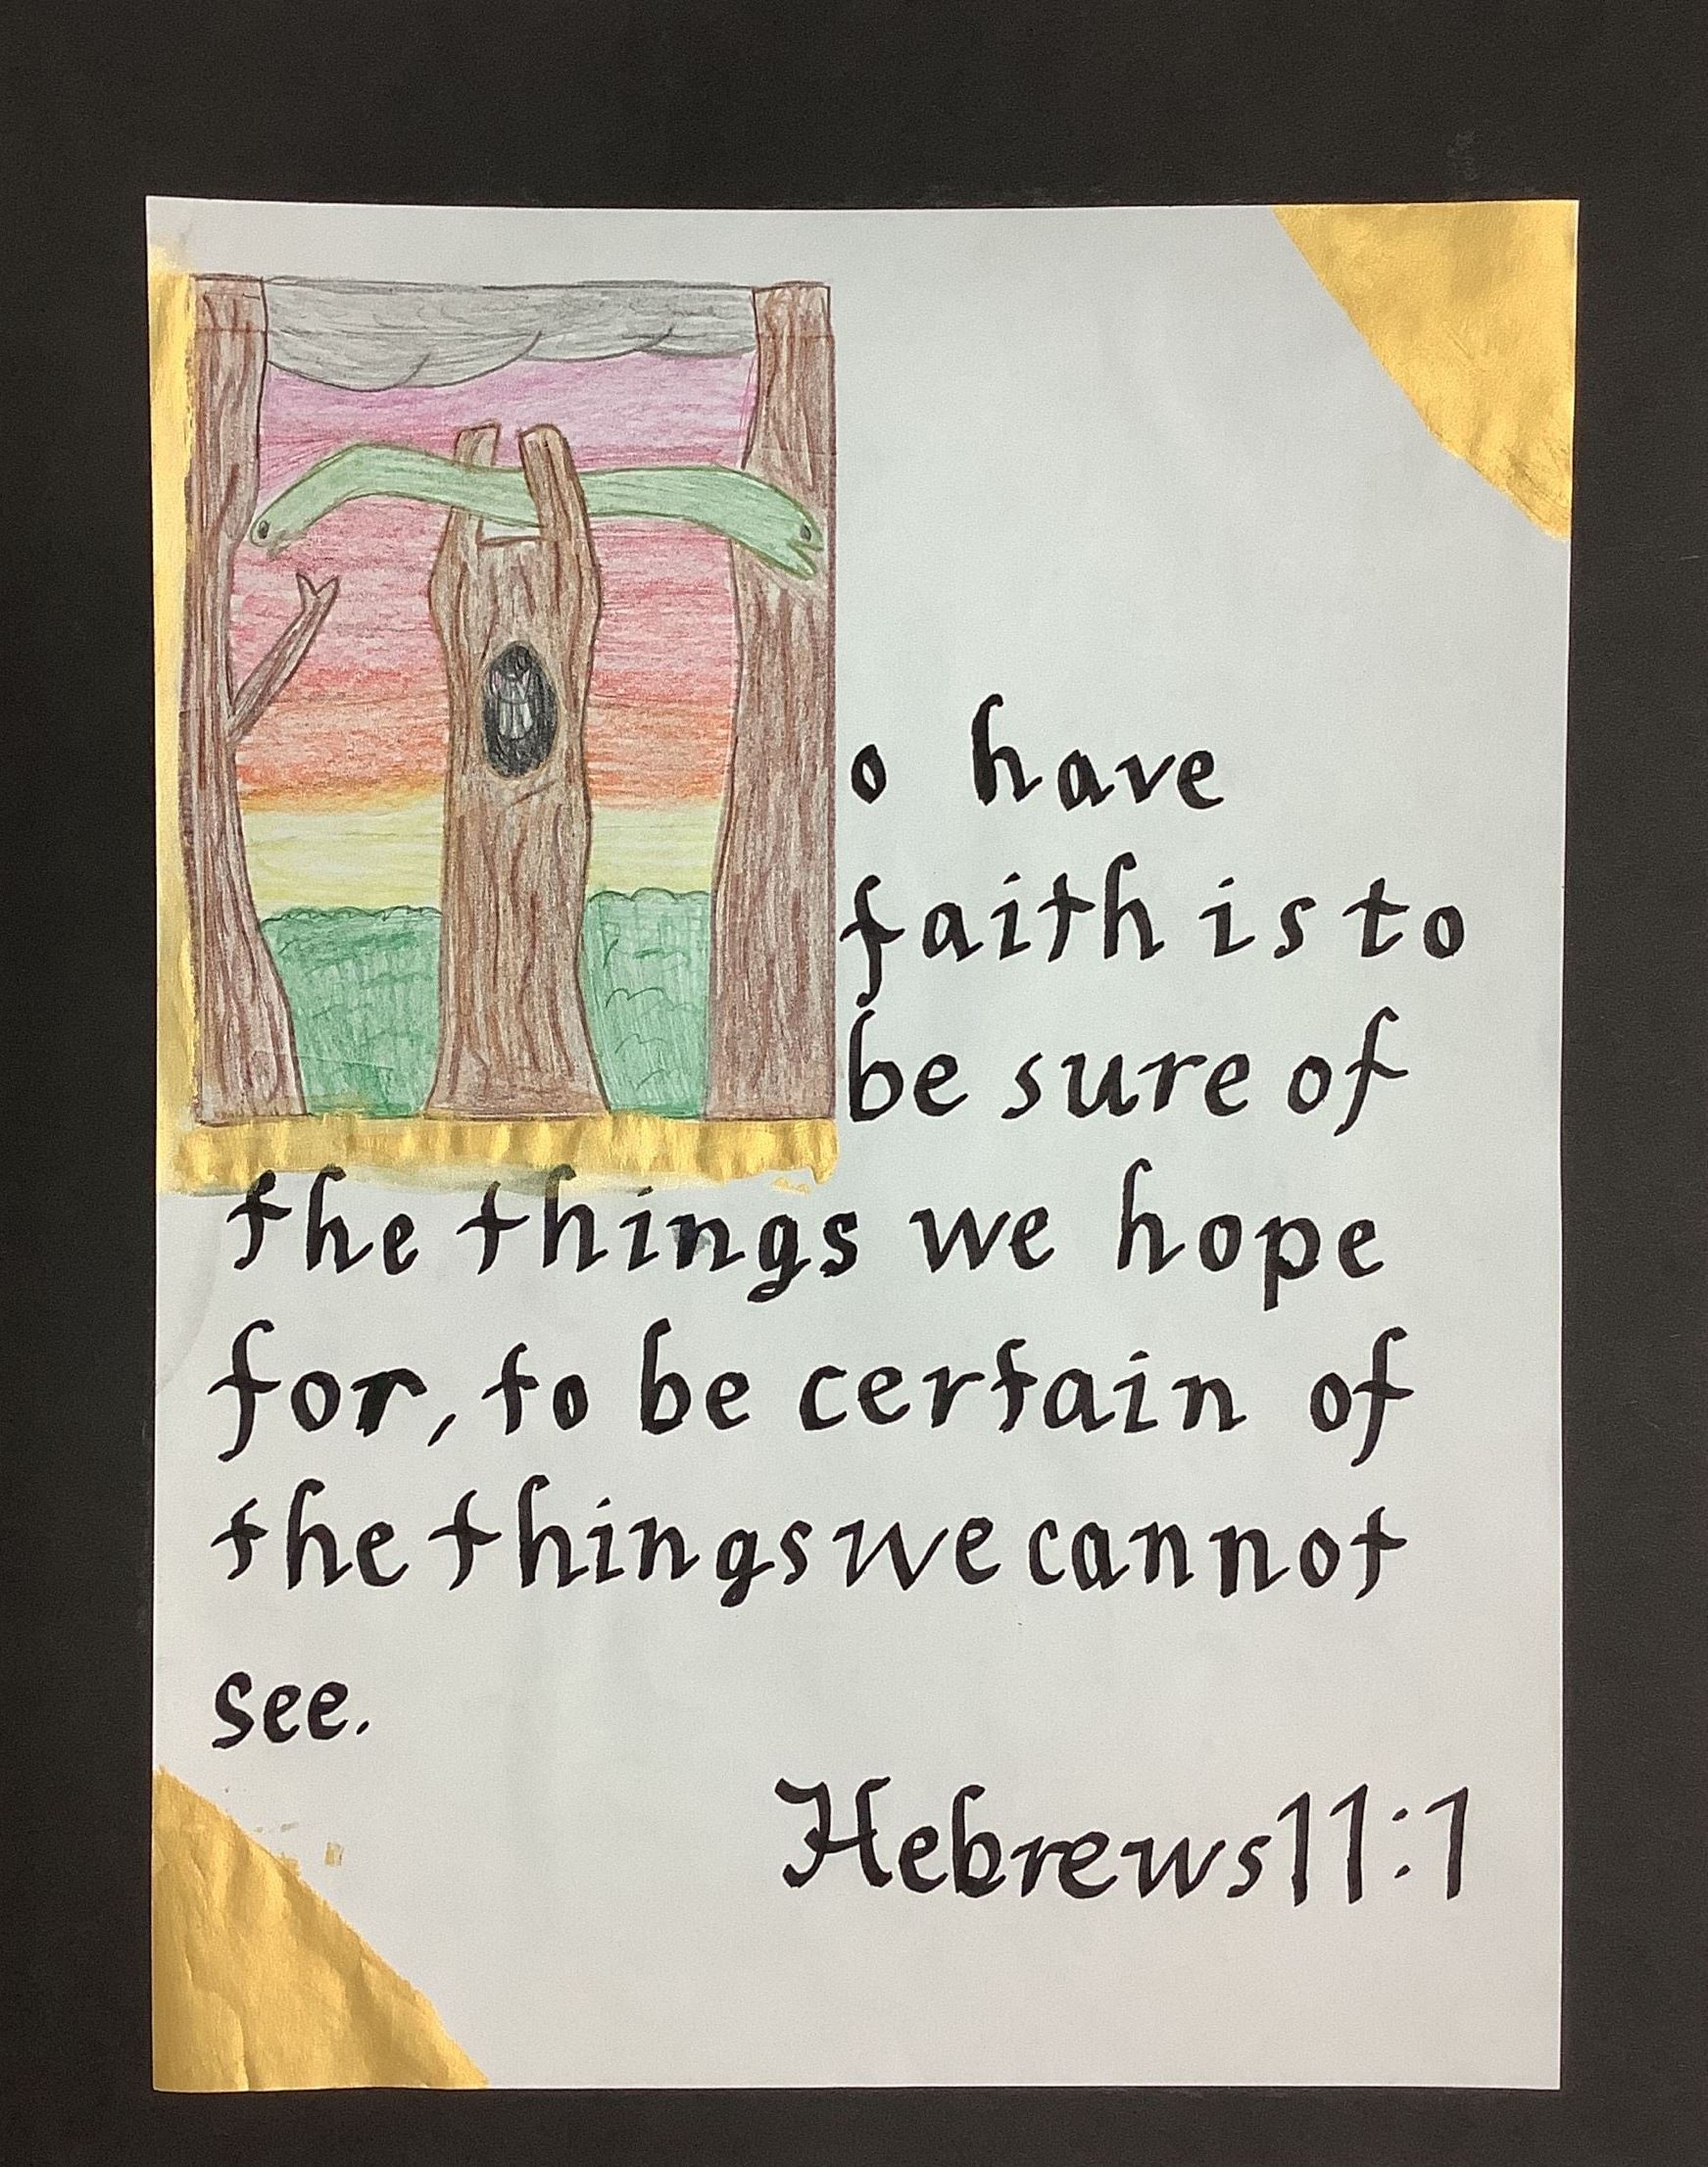 To have
faith is to
be sure of
the things we hope
for, to be certain of
the things we cannot
see.
Hebrews 11:1